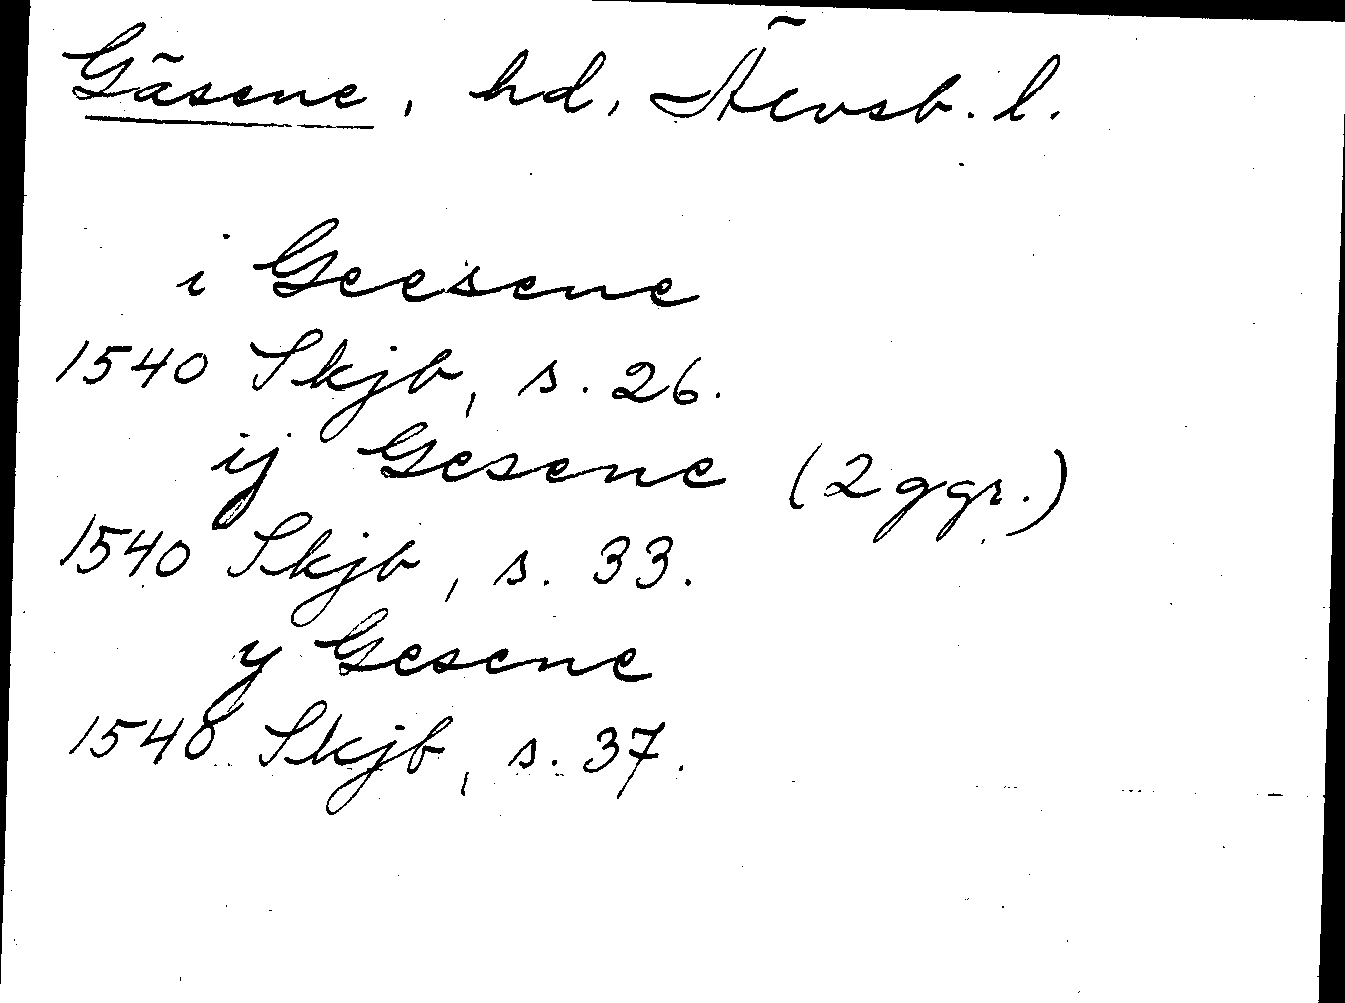 Gäsene, hd, Älvsb. l.
i Geesene
1540 Skjb, s. 26.
ij Gesene (2 ggr.)
1540 Skjb, s. 33.
y Gesene
1540 Skjb, s. 37.